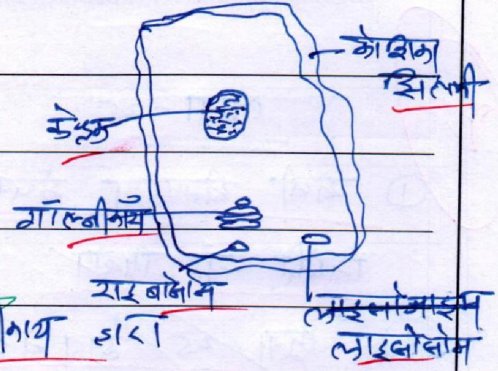 कोशिका
झिल्ली
केन्द्रक
गॉल्जीकाय
राइबोसोम
लाइसोसोम
काय द्वारा